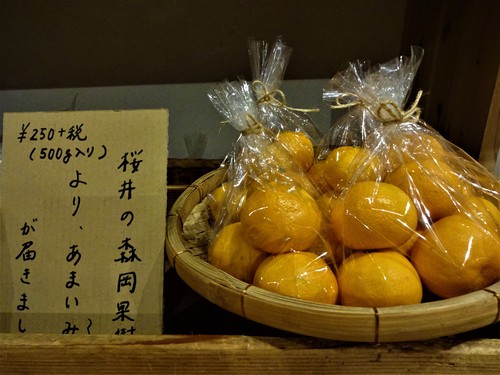 ¥250+税
(500g入り)
桜井の森岡果樹
より、あまいみ
が届きまし